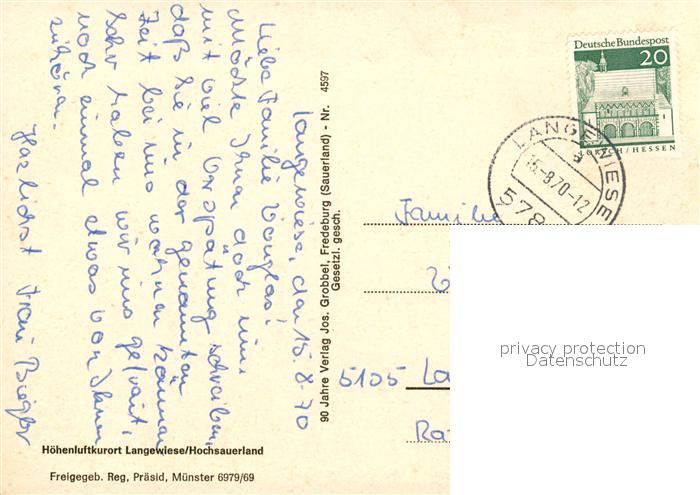 Langewiese, den 15.8.70
Liebe Familie
möchte Ihnen doch nun
mit viel Verspätung schreiben,
daß Sie in der genannten
Zeit bei uns wohnen können
Sehr haben wir uns gefreut,
noch einmal etwas von Ihnen
zu hören.
Herzlichst Frau
Höhenluftkurort Langewiese/Hochsauerland
Freigegeb. Reg, Präsid, Münster 6979/69
90 Jahre Verlag Jos. Grobbel, Fredeburg (Sauerland) - Nr. 4597
Gesetzl. gesch.
Deutsche Bundespost
20
LORSCH/HESSEN
LANGEWIESE
15.-8.70-12
578
Familie
5105 La
Ra
privacy protection
Datenschutz